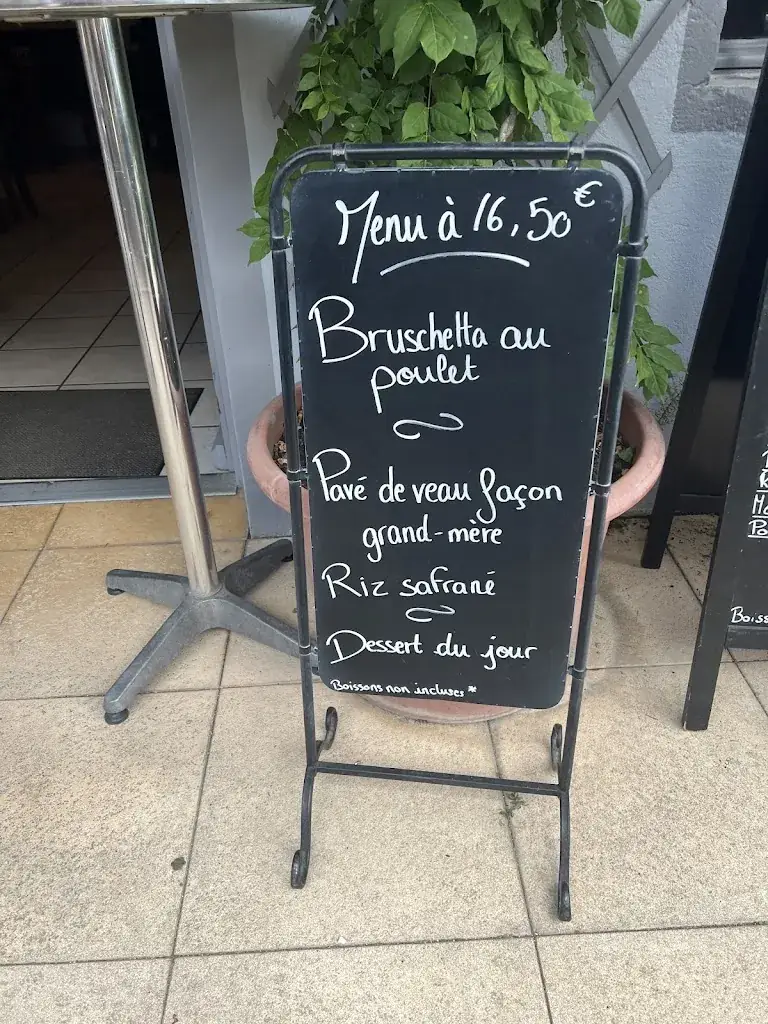 Menu à 16,50€
Bruschetta au
poulet
Pavé de veau façon
grand-mère
Riz safrané
Dessert du jour
Boissons non incluses*
Boiss